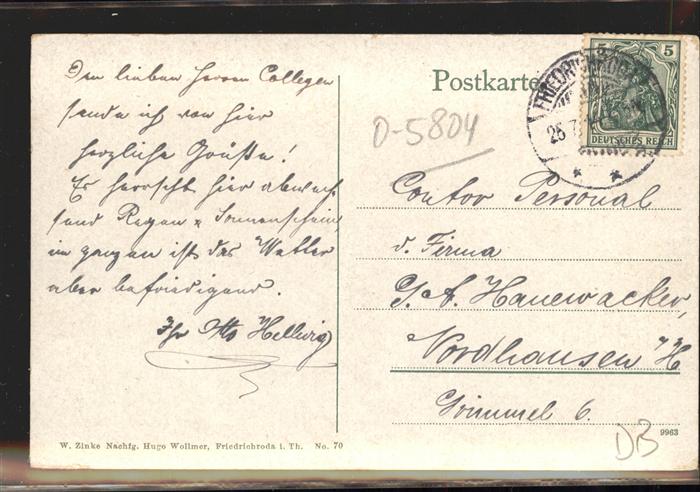 Den lieben Herren Collegen
sende ich von hier
herzliche Grüße!
Es herrscht hier abwech
send Regen & Sonnenschein,
im ganzen ist das Wetter
aber befriedigend.
Ihr Otto Hellwig
W. Zinke Nachfg. Hugo Wollmer, Friedrichroda i. Th. No. 70
Postkarte
D-5804
5
DEUTSCHES REICH
Contor Personal
d. Firma
G. A. Hanewacker,
Nordhausen H
Grimmel 6.
9963
DB